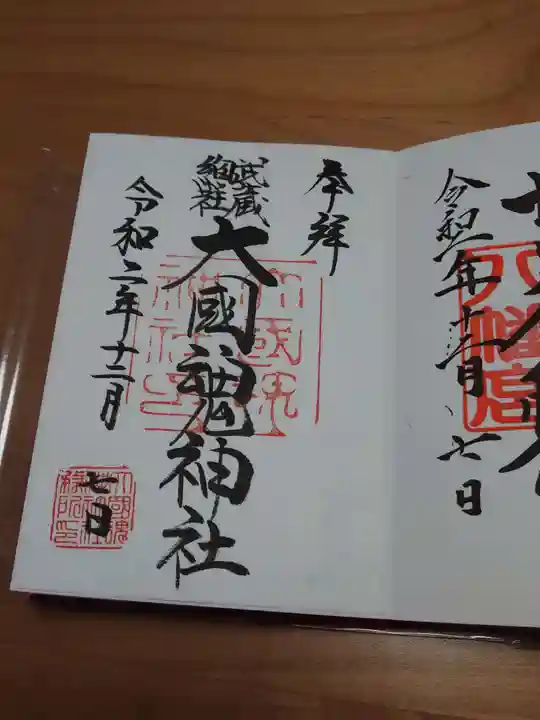 奉拝
武蔵
総社
大國魂神社
令和二年十二月
七日
令和二年十二月七日
八幡宮